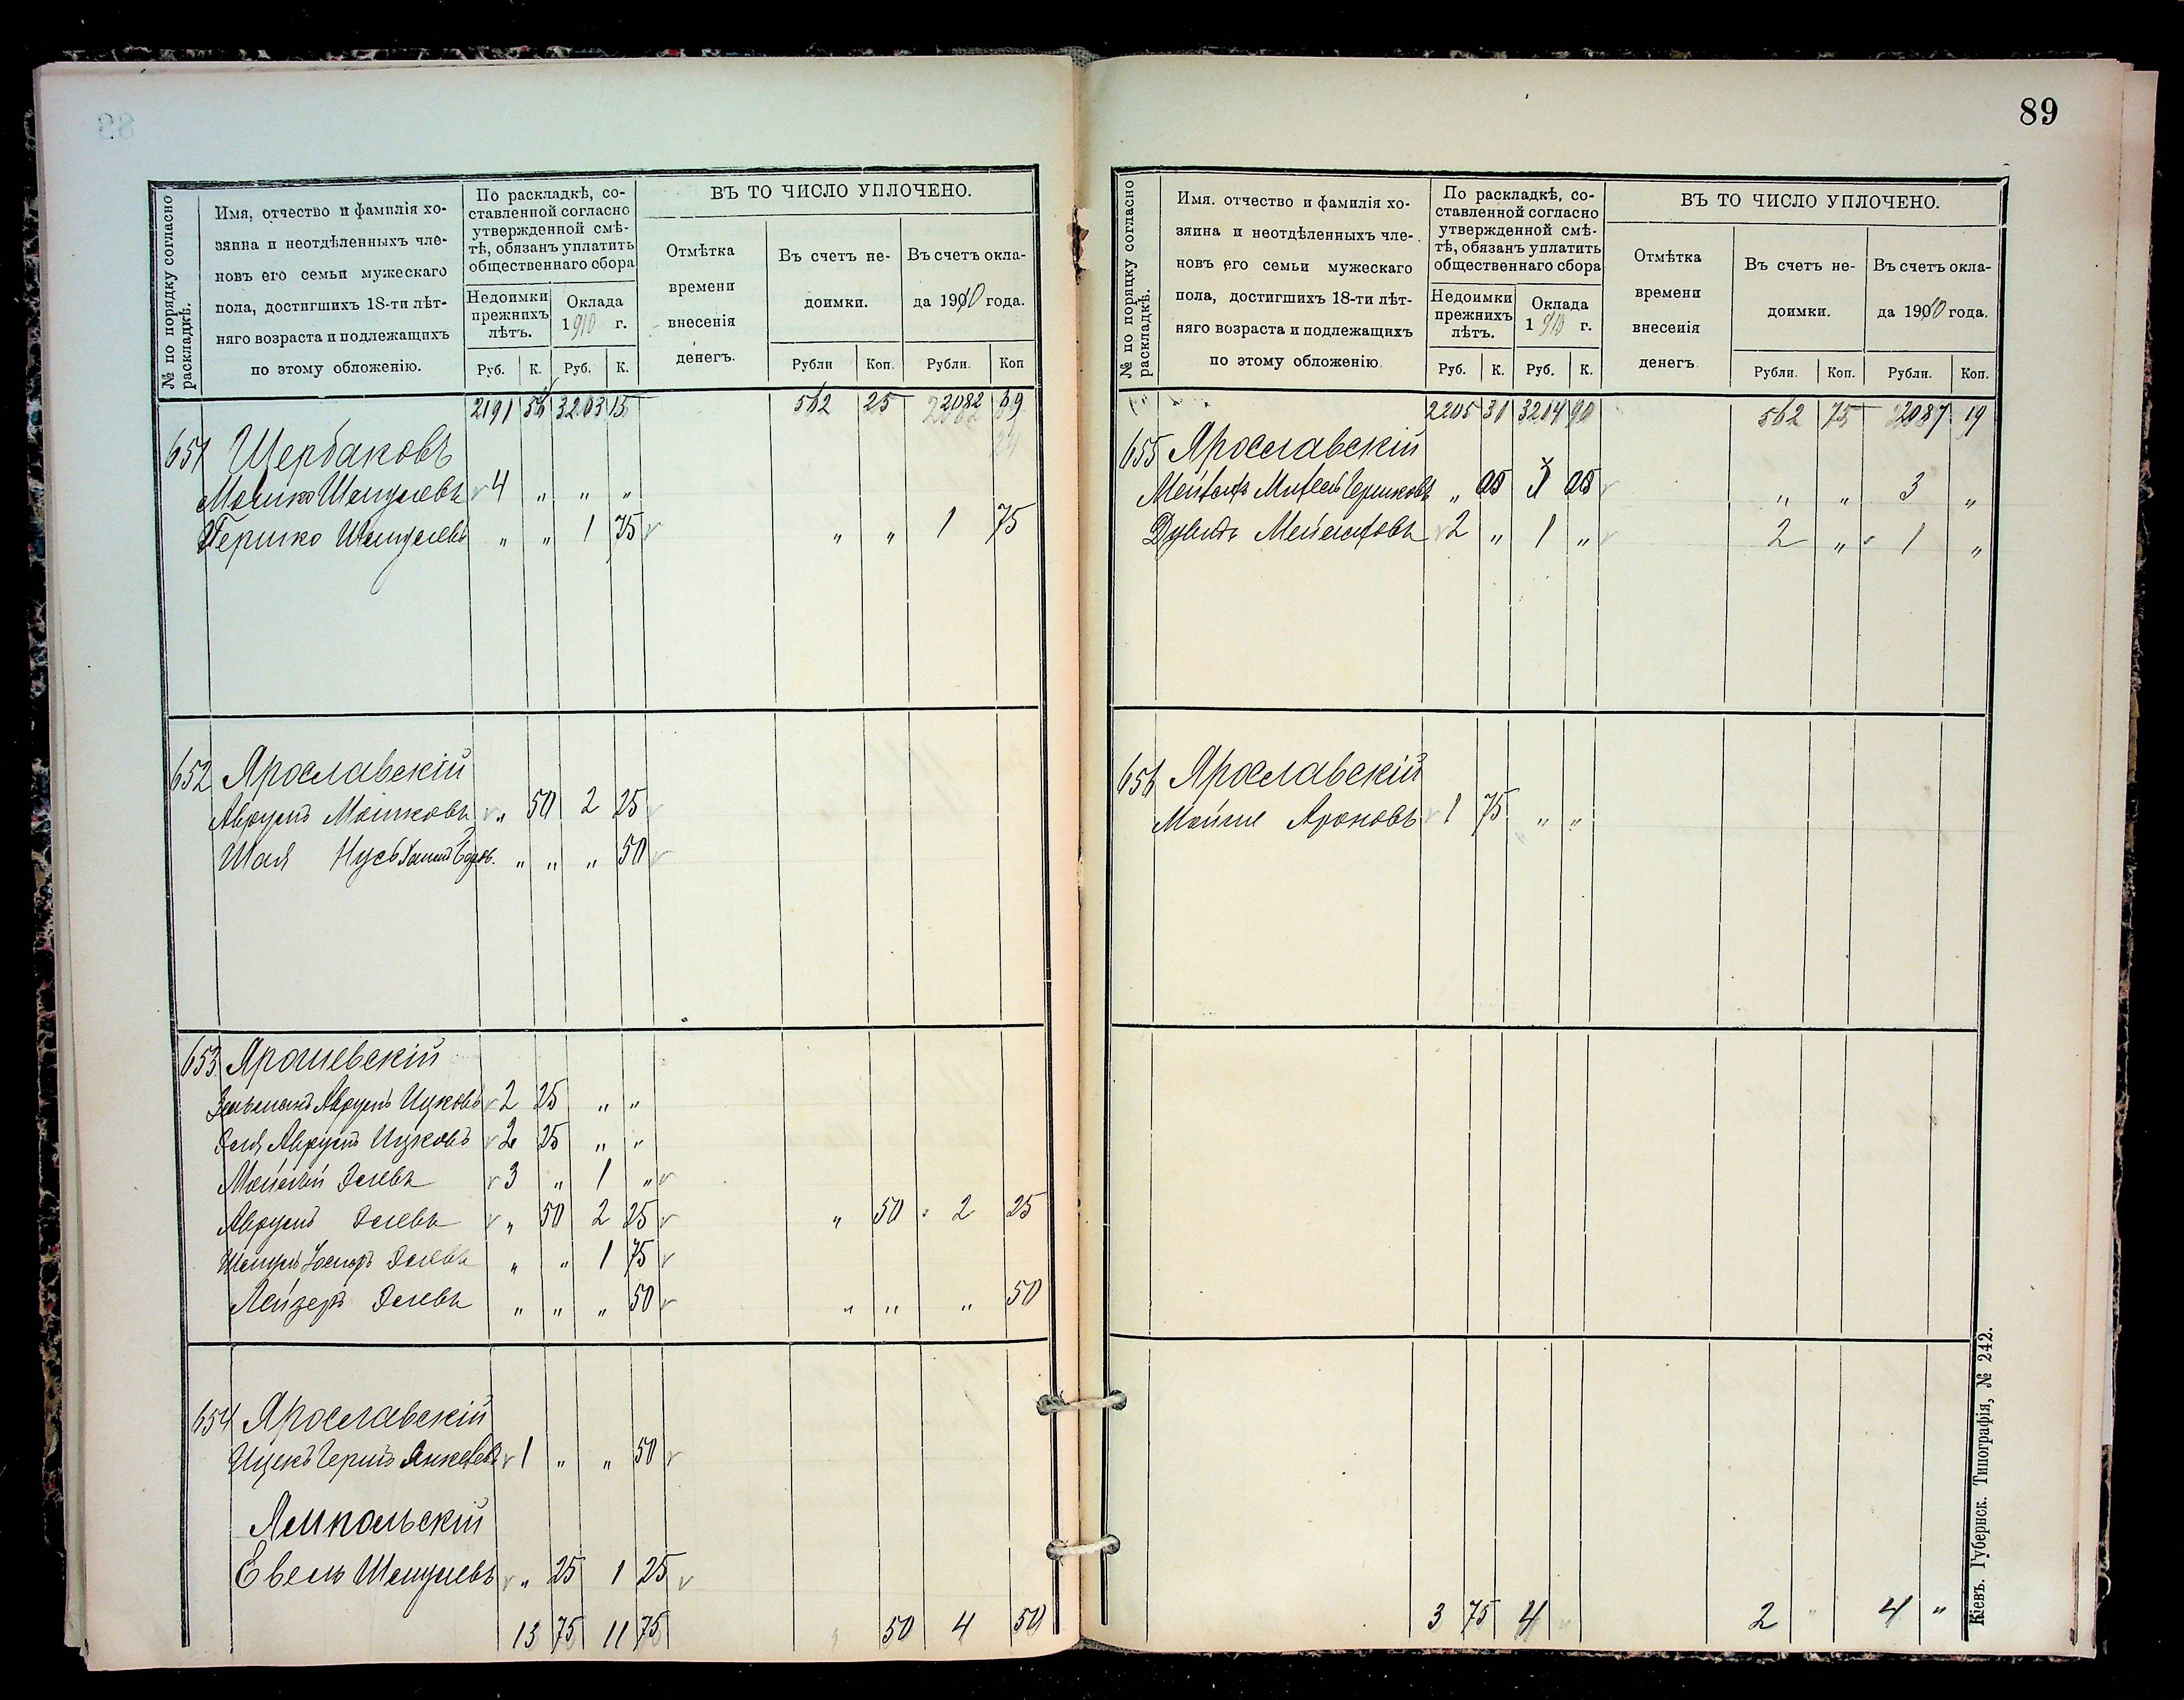 № по порядку согласно раскладкѣ.
Имя, отчество и фамилія хо-
зяина и неотдѣленныхъ чле-
новъ его семьи мужескаго
пола, достигшихъ 18-ти лѣт-
няго возраста и подлежащихъ
по этому обложенію.
По раскладкѣ, со-
ставленной согласно
утвержденной смѣ-
тѣ, обязанъ уплатить
общественнаго сбора
Недоимки прежнихъ лѣтъ.
Оклада 1910 г.
Руб. К. Руб. К.
ВЪ ТО ЧИСЛО УПЛОЧЕНО.
Отмѣтка времени внесенія денегъ.
Въ счетъ не-
доимки.
Въ счетъ окла-
да 1910 года.
Рубли Коп. Рубли. Коп
2191 56 3203 15 562 25 2082 69
651 Щербаковъ
Мошко Шмулевъ 4 „ „ „
Гершко Шмулевъ „ „ 1 75 „ „ 1 75
652 Ярославскій
Аврумъ Мошковъ „ 50 2 25
Шая „ „ „ 50
653 Ярошевскій
Зельманъ Аврумъ Ицковъ 2 25 „ „
Эля Аврумъ Ицковъ 2 25 „ „
Мойсей Элевъ 3 „ 1 „
Аврумъ Элевъ „ 50 2 25 „ 50 2 25
Шмулъ Элевъ „ „ 1 75
Лейзеръ Элевъ „ „ „ 50 „ „ „ 50
654 Ярославскій
Ицекъ Гершъ Янкелевъ 1 „ „ 50
Ямпольскій
Евель Шмулевъ „ 25 1 25
13 75 11 75 50 4 50
89
№ по порядку согласно раскладкѣ.
Имя. отчество и фамилія хо-
зяина и неотдѣленныхъ чле-
новъ его семьи мужескаго
пола, достигшихъ 18-ти лѣт-
няго возраста и подлежащихъ
по этому обложенію.
По раскладкѣ, со-
ставленной согласно
утвержденной смѣ-
тѣ, обязанъ уплатить
общественнаго сбора
Недоимки прежнихъ лѣтъ.
Оклада 1910 г.
Руб. К. Руб. К.
ВЪ ТО ЧИСЛО УПЛОЧЕНО.
Отмѣтка времени внесенія денегъ.
Въ счетъ не-
доимки.
Въ счетъ окла-
да 1910 года.
Рубли. Коп. Рубли. Коп.
2205 31 3214 90 562 75 2087 19
655 Ярославскій
Гершковъ „ 3 „ „ 3 „
Дувидъ 2 „ 1 „ 2 „ 1 „
656 Ярославскій
Мойше Ароновъ 1 75 „ „
3 75 4 2 „ 4 „
Кіевъ. Губернск. Типографія, № 242.